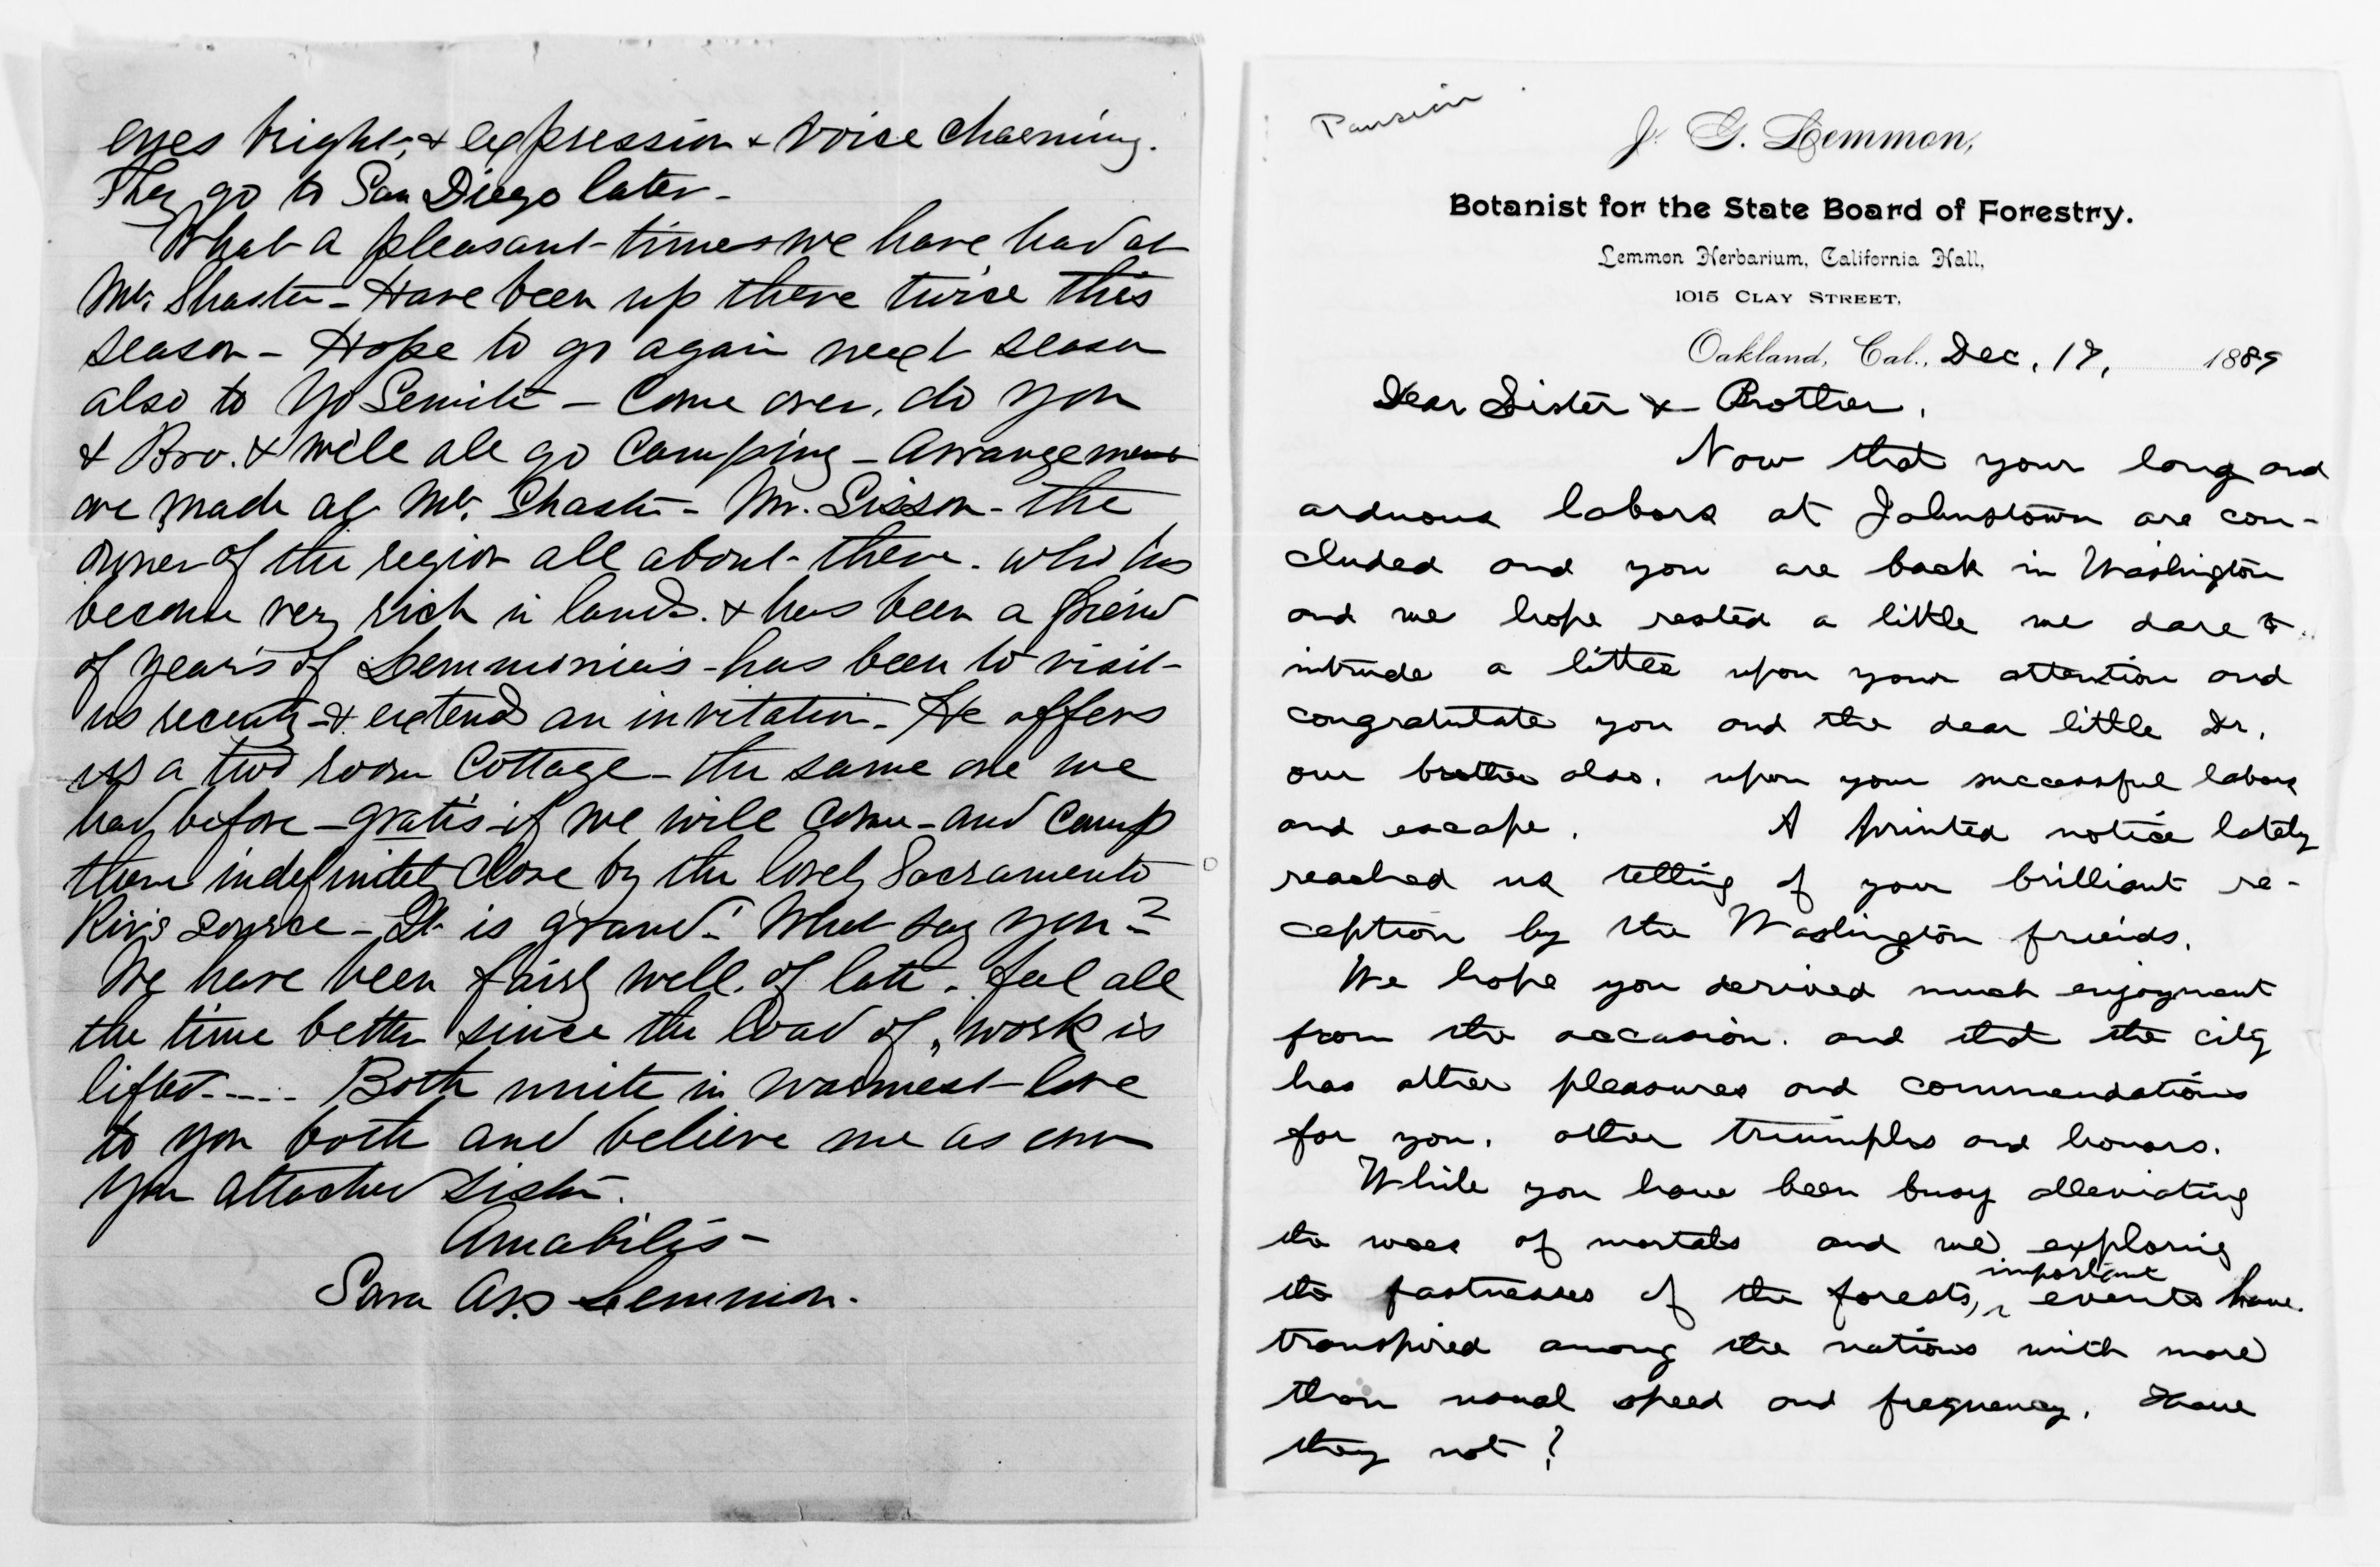 eyes bright, & expression & voice charming.
They go to San Diego later -
What a pleasant times we have had at
Mt. Shasta - Have been up there twice this
season - Hope to go again next season
also to Yo Semite - Come over, do you
& Bro. & we'll all go Camping - Arrangements
are made at Mt. Shasta - Mr. Sisson - the
owner of the region all about there. who has
become very rich in lands. & has been a friend
of years of Lemmonia's - has been to visit
us recently - & extends an invitation - He offers
us a two room Cottage - the same one we
had before - gratis - if we will come - and camp
there indefinitely close by the lovely Sacramento
Riv's source - It is grand! What say you?
We have been fairly well of late. feel all
the time better since the load of work is
lifted ---- Both unite in warmest love
to you both and believe me as ever
your attached sister.
Amabilis -
Sara A. P. Lemmon.
J. G. Lemmon,
Botanist for the State Board of Forestry.
Lemmon Herbarium, California Hall,
1015 CLAY STREET,
Oakland, Cal., Dec. 17, 1889
Dear Sister & Brother,
Now that your long and
arduous labors at Johnstown are con-
cluded and you are back in Washington
and we hope rested a little we dare to
intrude a little upon your attention and
congratulate you and the dear little Dr.
our brother also. upon your successful labors
and escape. A printed notice lately
reached us telling of your brilliant re-
ception by the Washington friends.
We hope you derived much enjoyment
from the occasion. and that the city
has other pleasures and commendations
for you. other triumphs and honors.
While you have been busy alleviating
the woes of mortals and we exploring
the fastnesses of the forests, important events have
transpired among the nations with more
than usual speed and frequency. Have
they not?